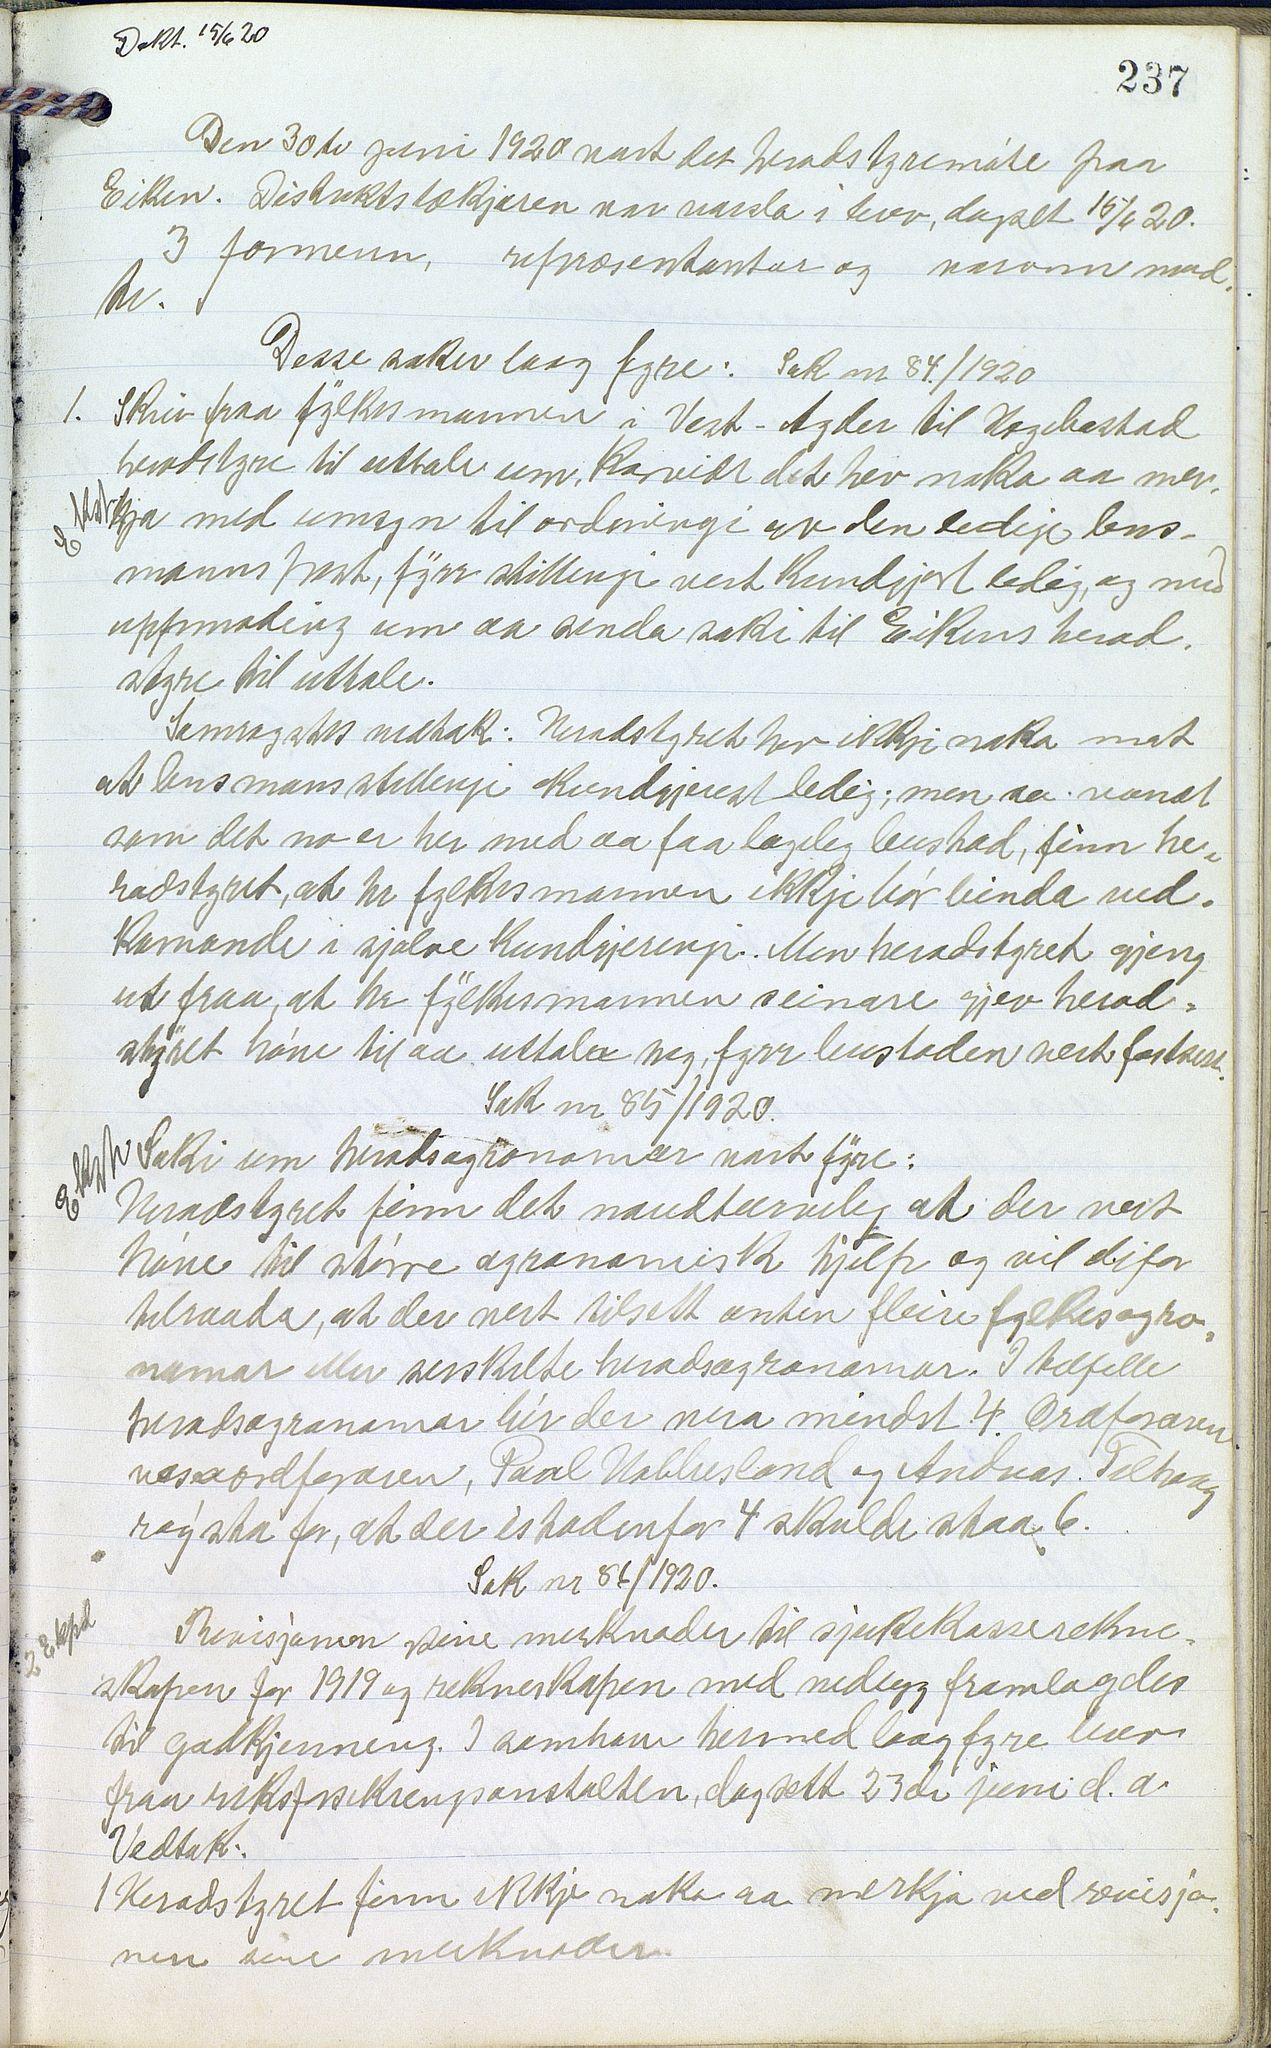 Dokt. 15/6 20
237
Den 30te juni 1920 vart det heradstyremöte paa
Eiken. Distriktslækjaren var varsla i brev, dagset 15/6 20.
3 formenn, representantar og varamenn
te.
Desse saker laag fyre: Sak nr 84/1920
1. Skriv fraa fylkesmannen i Vest-Agder til Hægebostad
heradstyre til uttale um, korvidt det hev noko aa mer-
kja med umsyn til ordningi av den ledige lens-
mannspost, fyrr stillingi vert kundgjort ledig, og med
uppmoding um aa senda saki til Eikens herad-
styre til uttale.
Samrøystes vedtak: Heradstyret hev ikkje noko mot
at lensmansstillingi kundgjerest ledig; men so vandt
som det no er her med aa faa lagleg bustad, finn he-
radstyret, at hr fylkesmannen ikkje bör binda ved-
komande i sjølve kundgjeringi. Men heradstyret gjeng
ut fraa, at hr fylkesmannen seinare gjev herad-
styret höve til aa uttala seg, fyrr bustaden vert fastsett.
Sak nr 85/1920.
Saki um heradsagronomar vart fyre:
Heradstyret finn det naudturveleg at der vert
höve til större agronomisk hjelp og vil difor
tilraada, at der vert tilsett anten fleire fylkesagro-
nomar eller serskilte heradsagronomar. I tilfelle
heradsagronomar bör der vera mindst 4. Ordforaren
varaordforaren, Paul Hobbesland og Andreas Tilhaug
røysta for, at der istadenfor 4 skulde staa 6.
Sak nr 86/1920.
2 Ekspd
Revisjonen sine merknader til sjukekasserekne-
skapen for 1919 og rekneskapen med vedlegg framlagdes
til godkjenning. I samhove hermed laag fyre brev
fraa riksforsikringsanstalten, dagsett 23de juni d. a.
Vedtak:
1 Heradstyret finn ikkje noko aa merkja ved revisjo-
nen sine merknader